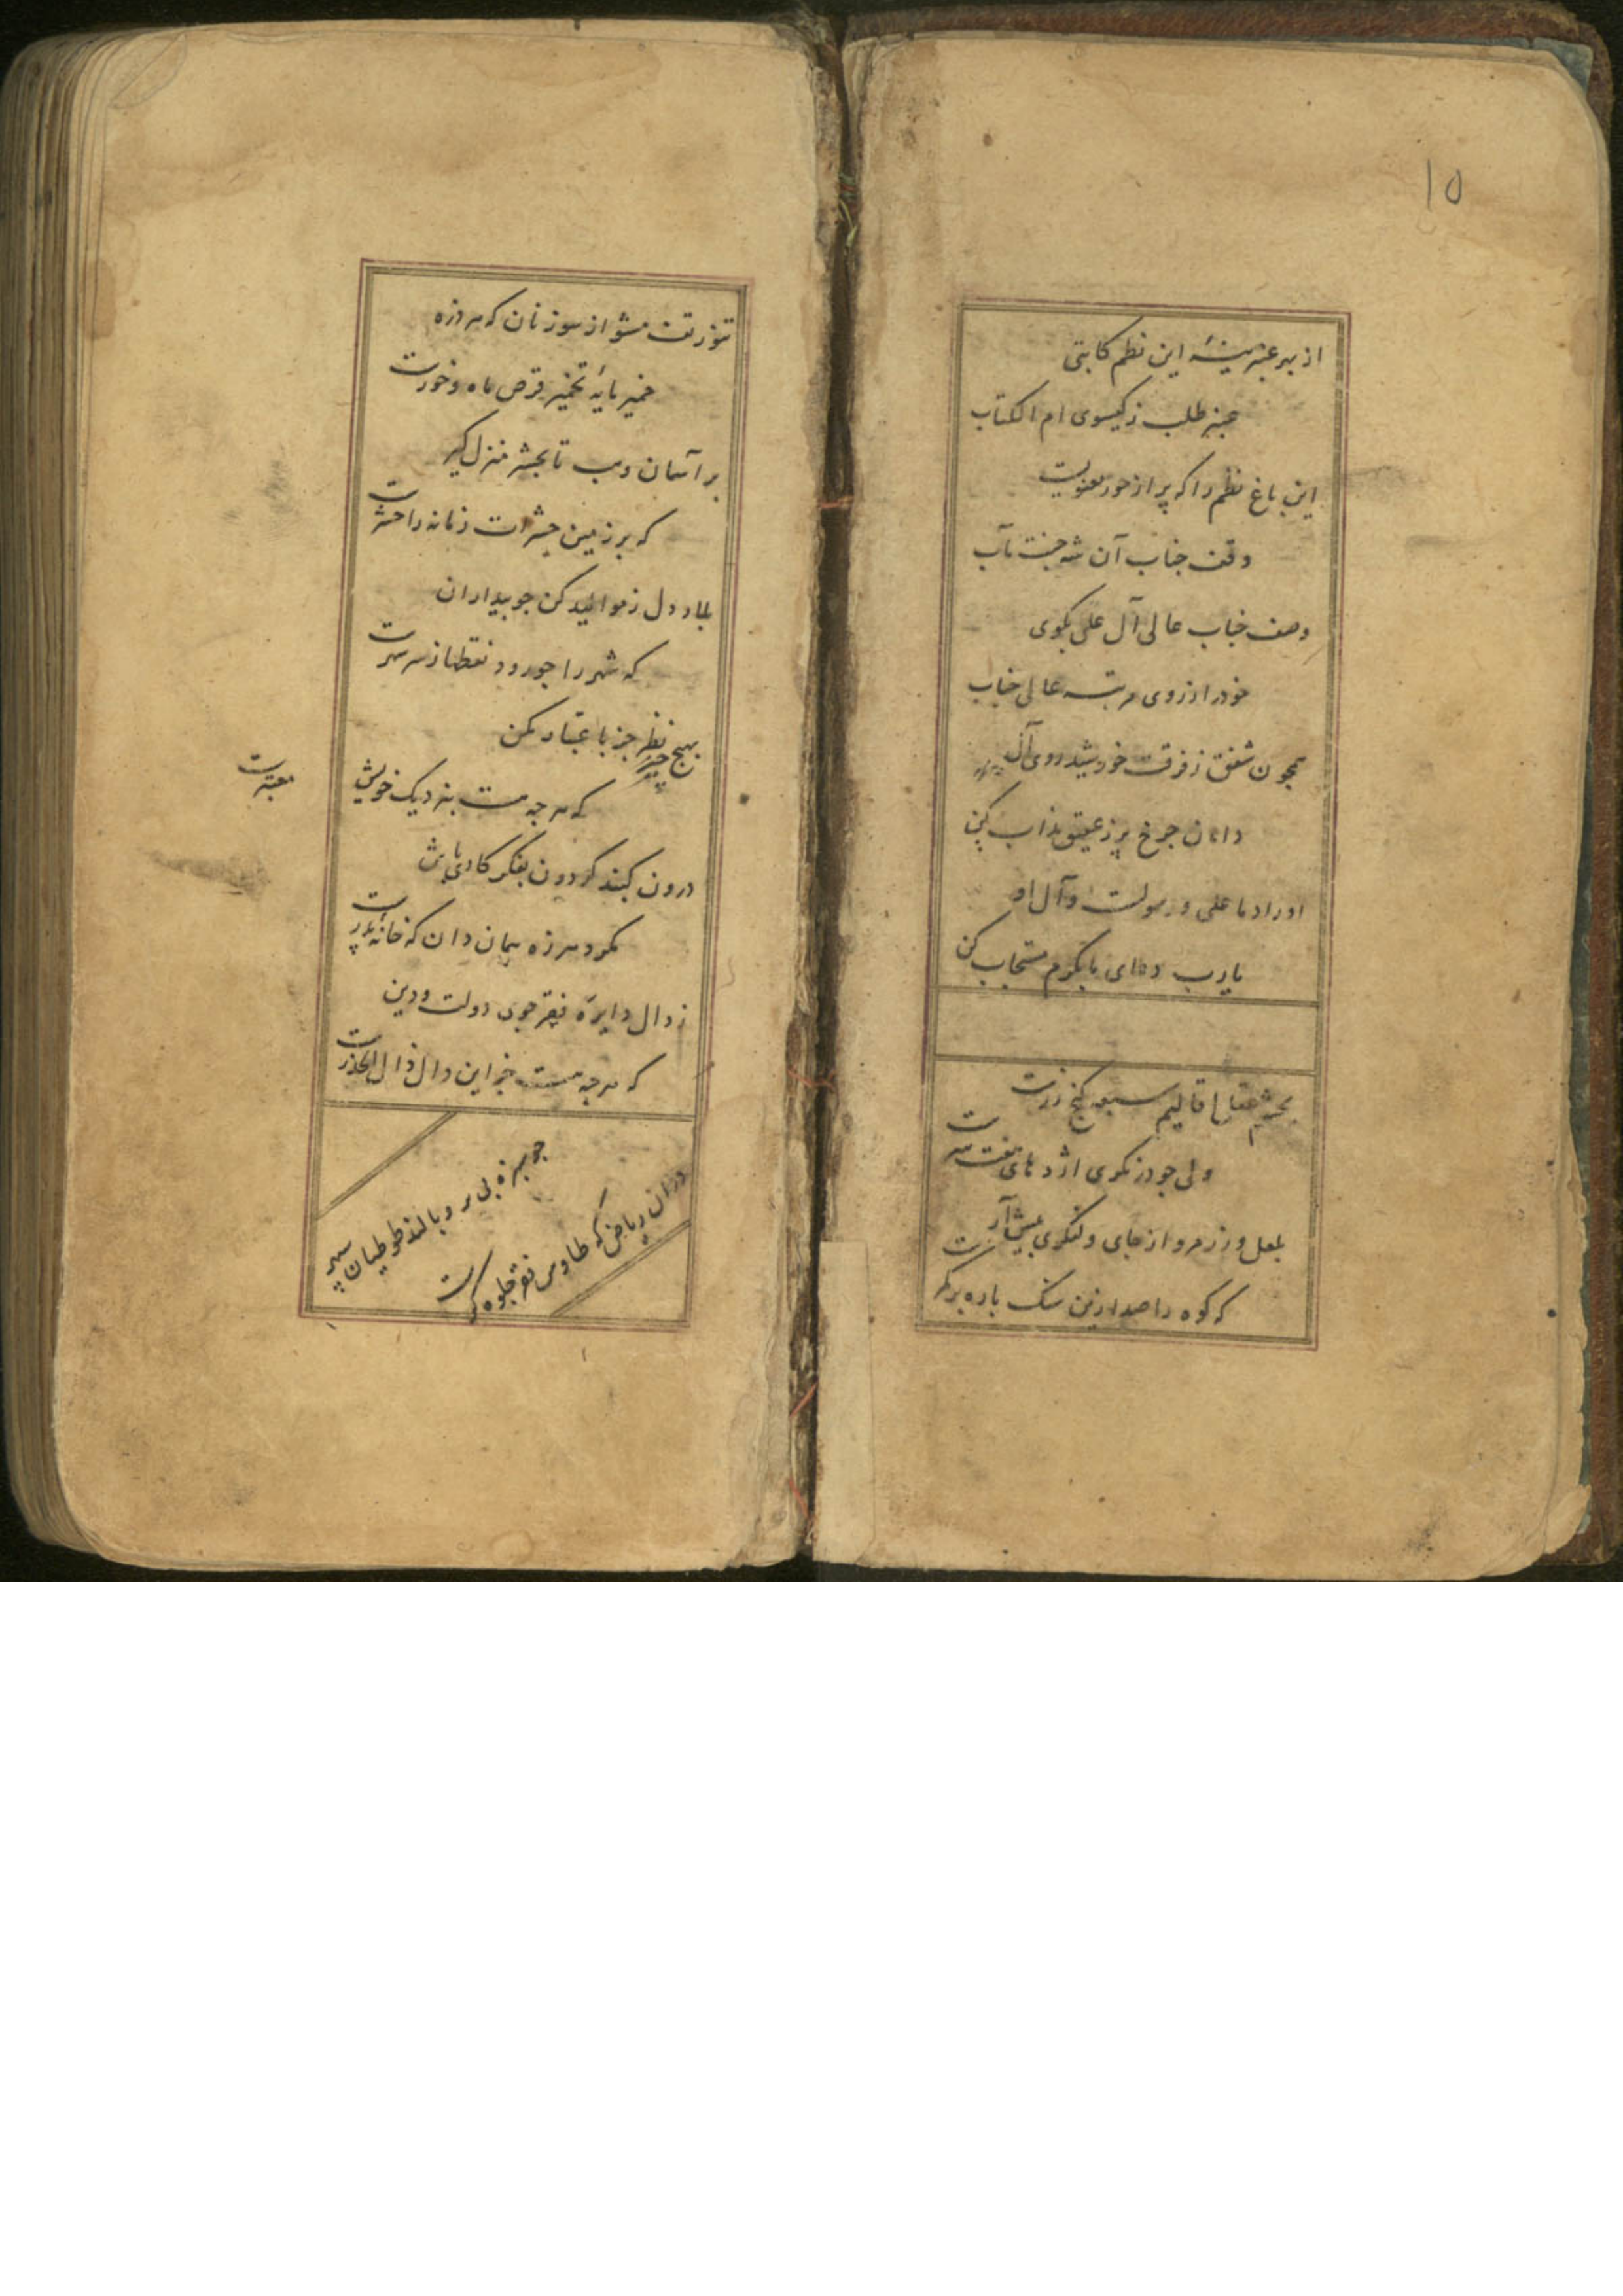 ۱۵
از بهر عنبرینهٔ این نظم کاتبی
عنبر طلب ز کیسوی ام الکتاب
این باغ نظم را که پر از حور معنویت
وقف جناب آن شه جنت مآب
وصف جناب عالی آل علی بکوی
خود را ز روی مرتبه عالی جناب
همچون شفق ز فرقت خورشید روی آل
دامان چرخ پر ز عقیق مذاب کن
اوراد ما علی و رسولست و آل او
یارب دعای ما بکرم مستجاب کن
بچشم عقل اقالیم سبعه کنج زرست
ولی چو در نکری اژدهای هفت سرست
بلعل و زر مرو از جای و لنکری پیش آر
که کوه را صد ازین سنک پاره بر کمرست
تنور تفت مشو از سوز نان که هر روزه
خمیر مایهٔ تخمیر قرص ماه و خورست
بر آسمان و تا بحشر منزل کیر
که بر زمین حشرات زمانه را حشرست
بلاد دل ز موالید کن چو بیداران
که شهر را چو رود نقطها ز سر سهرست
بهیچ چیز نظر جز باعتبار مکن
که هر چه هست بنزدیک خویش
معتبرست
درون کنبد کردون بفکر کاری باش
مکرد هرزه همان دان که خانهٔ پدرست
ز دال دایرهٔ فقر جوی دولت و دین
که هر چه هست جز این دال ذال الحذرست
چو سبزه بی پر و بالند طوطیان سپهر
در آن ریاض که طاوس فقر جلوه کرست